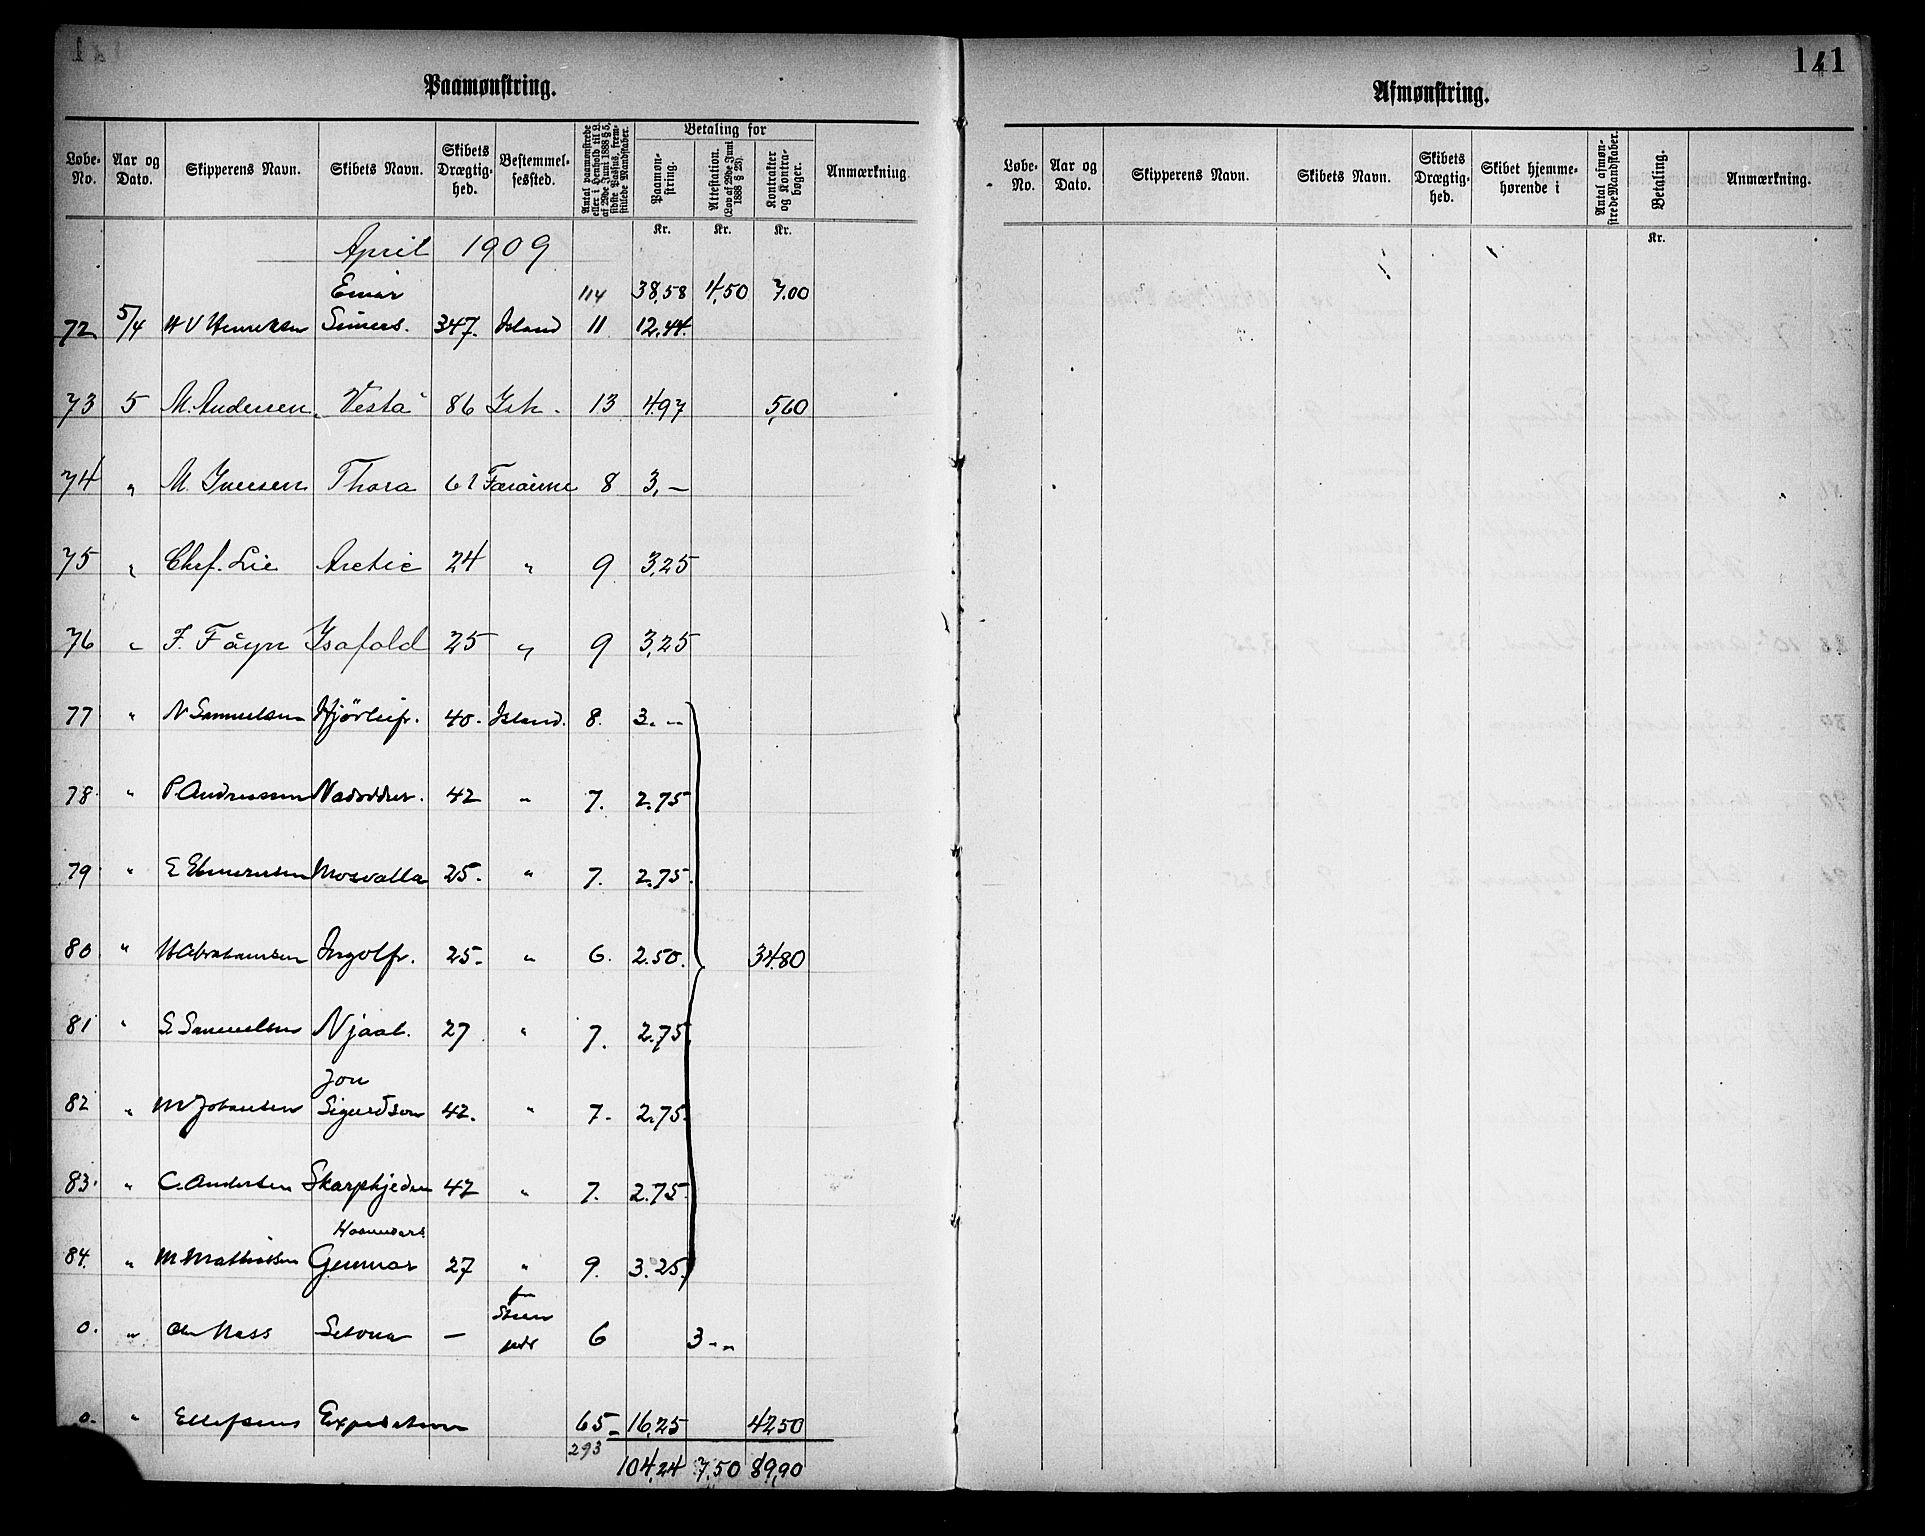 Paamønstring.
Løbe-No. | Aar og Dato. | Skipperens Navn. | Skibets Navn. | Skibets Drægtig-hed. | Bestemmel-sessted. | Antal paamønstrede eller i Henhold til L. af 29de Juni 1888 § 5, sidste Passus, frem-stillede Mandskaber. | Betaling for | Paamøn-string. | Attestation. (Lov af 29de Juni 1888 § 25). | Kontrakter og Kontra-bøger. | Anmærkning.
Kr. Kr. Kr.
April 1909
Einar 114 38,58 4,50 7.00
72 5/4 H V Henriksen Simers. 347. Island 11 12.44.
73 5 M. Andersen Vesta 86 Ish. 13 4.97 5,60
74 " M. Iversen Thora 61 Færøerne 8 3,—
75 " Chrf. Lie Arctic 24 " 9 3,25
76 " F. Føyn Isafold 25 " 9 3,25
77 " N Samuelsen Hjörleifr. 40. Island. 8. 3.--
78 " P. Andreassen Nadoddur. 42 " 7. 2.75
79 " E Elmersen Mosvalla 25. " 7. 2.75.
80 " H Abrahamsen Ingolfr. 25. " 6. 2.50. 34.80
81 " S. Samuelsen Njaal. 27 " 7. 2.75.
Jon
82 " M Johansen Sigurdson 42. " 7. 2.75.
83. " C. Andersen Skarphjedin 42 " 7. 2.75.
84. " M Mathiassen Gunnar 27 " 9. 3.25.
0. " Nass — 6 3--
0. " Ellefsens Expedition 65 16,25 42,50
293 104,24 7,50 89,90
141
Afmønstring.
Løbe-No. | Aar og Dato. | Skipperens Navn. | Skibets Navn. | Skibets Drægtig-hed. | Skibet hjemme-hørende i | Antal afmøn-strede Mandskaber. | Betaling. | Anmærkning.
Kr.